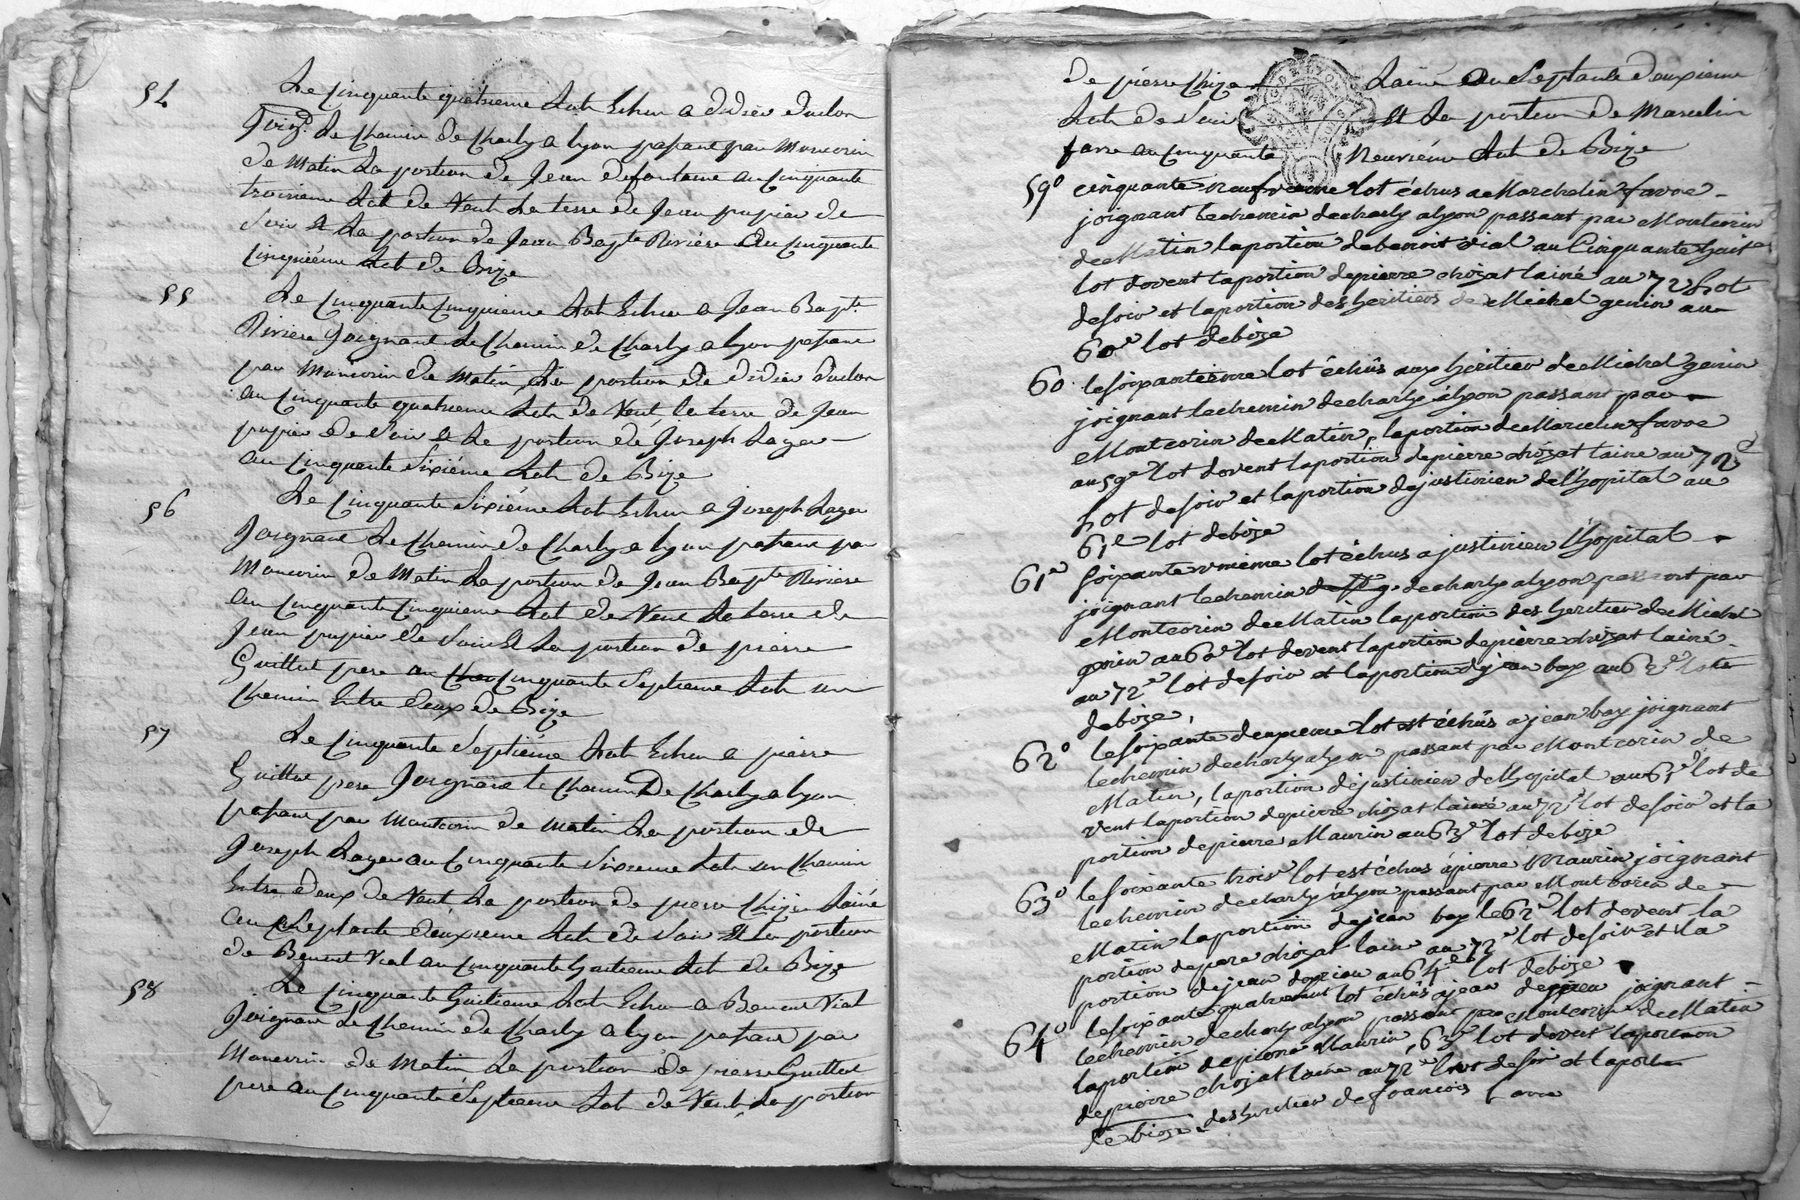 54
Le Cinquante quatrieme Lot Echu a didier dulon
Joig.t Le Chemin de Charly a lyon passant par Moncorin
de Matin La portion de Jean defontaine au Cinquante
troisieme Lot de Vent La terre de Jean papier de
Soir & La portion de Jean Bapte Riviere Au Cinquante
Cinquiéme Lot de Bize
55
Le Cinquante Cinquieme Lot Echu a Jean Bapt.
Riviere Joignant Le Chemin de Charly a lyon passant
par Moncorin de Matin La portion de didier dulon
au Cinquante quatrieme Lot de Vent le terre de Jean
papier de Soir & La portion de Joseph Lager
au Cinquante Sixiéme Lot de Bize
56
Le Cinquante Sixiéme Lot Echu a Joseph Lager
Joignant Le Chemin de Charly a lyon passant par
Moncorin de Matin La portion de Jean Bapte Riviere
au Cinquante Cinquieme Lot de Vent La terre de
Jean papier de Soir & La portion de pierre
Guillot pere au Cinquante Septieme Lot un
Chemin Entre deux de Bize
57
Le Cinquante Septiéme Lot Echu a pierre
Guillot pere Joignant le Chemin De Charly a lyon
passant par Montcorin de matin La portion de
Joseph Lager au Cinquante Sixieme Lot un Chemin
Entre deux de Vent La portion de pierre Chize Lainé
au Septante deuxieme Lot de Soir & La portion
de Benoit Vial au Cinquante huitieme Lot de Bize
58
Le Cinquante huitieme Lot Echu a Benoit Vial
Joignant Le Chemin de Charly a lyon passant par
Moncorin de Matin La portion de pierre Guillot
pere au Cinquante Septieme Lot de Vent, La portion
de pierre Chize Lainé au Septante deuxieme
Lot de Soir Et La portion de Marcelin
favre au Cinquante Neuviéme Lot de Bize
59° cinquante neufvieme lot échus a Marchelin favre
joignant le chemin de charly a lyon passant par Montcorin
de Matin la portion de benoit vial au Cinquante huit
lot dovent la portion de pierre chizat lainé au 72 Lot
de soir et la portion des heritiers de Michel genin au
60e lot de bize
60 le soixantieme lot échûs aux heritier de Michel genin
joignant le chemin de charly a lyon passant par
Montcorin de Matin, la portion de Marcelin favre
au 59e lot dovent la portion de pierre chizat laine au 72e
Lot de soir et la portion de justinien de l'hopital au
61e lot de bize
61e soixante unieme lot échus a justinien l'hopital
joignant le chemin de charly a lyon passant par
Montcorin de Matin la portion des heritier de Michel
genin au 60e lot dovent la portion de pierre chizat lainé
au 72e lot de soir et la portion de jean bay au 62e lot
de bize,
62° le soixante deuxieme lot est échûs a jean bay joignant
le chemin de charly a lyon passant par Montcorin de
Matin, la portion de justinien de l'hopital au 61e lot de
vent la portion de pierre chizat lainé au 72e lot de soir et la
portion de pierre Maurin au 63e lot de bize
63° le soixante trois lot est échus á pierre Maurin joignant
le chemin de charly a lyon passant par Montcorin de
Matin la portion de jean bay le 62e lot dovent la
portion de piere chizat laine au 72e lot de soir et la
portion de jean au 64e lot de bize
64° le soixante quatrieme lot échûs a jean joignant
le chemin de charly a lyon passant par Montcorin de Matin
la portion de pierre Maurin, 63e lot dovent la portion
de pierre chizat laine au 72e lot de soir et la portion
de bize des heritier de francois favre